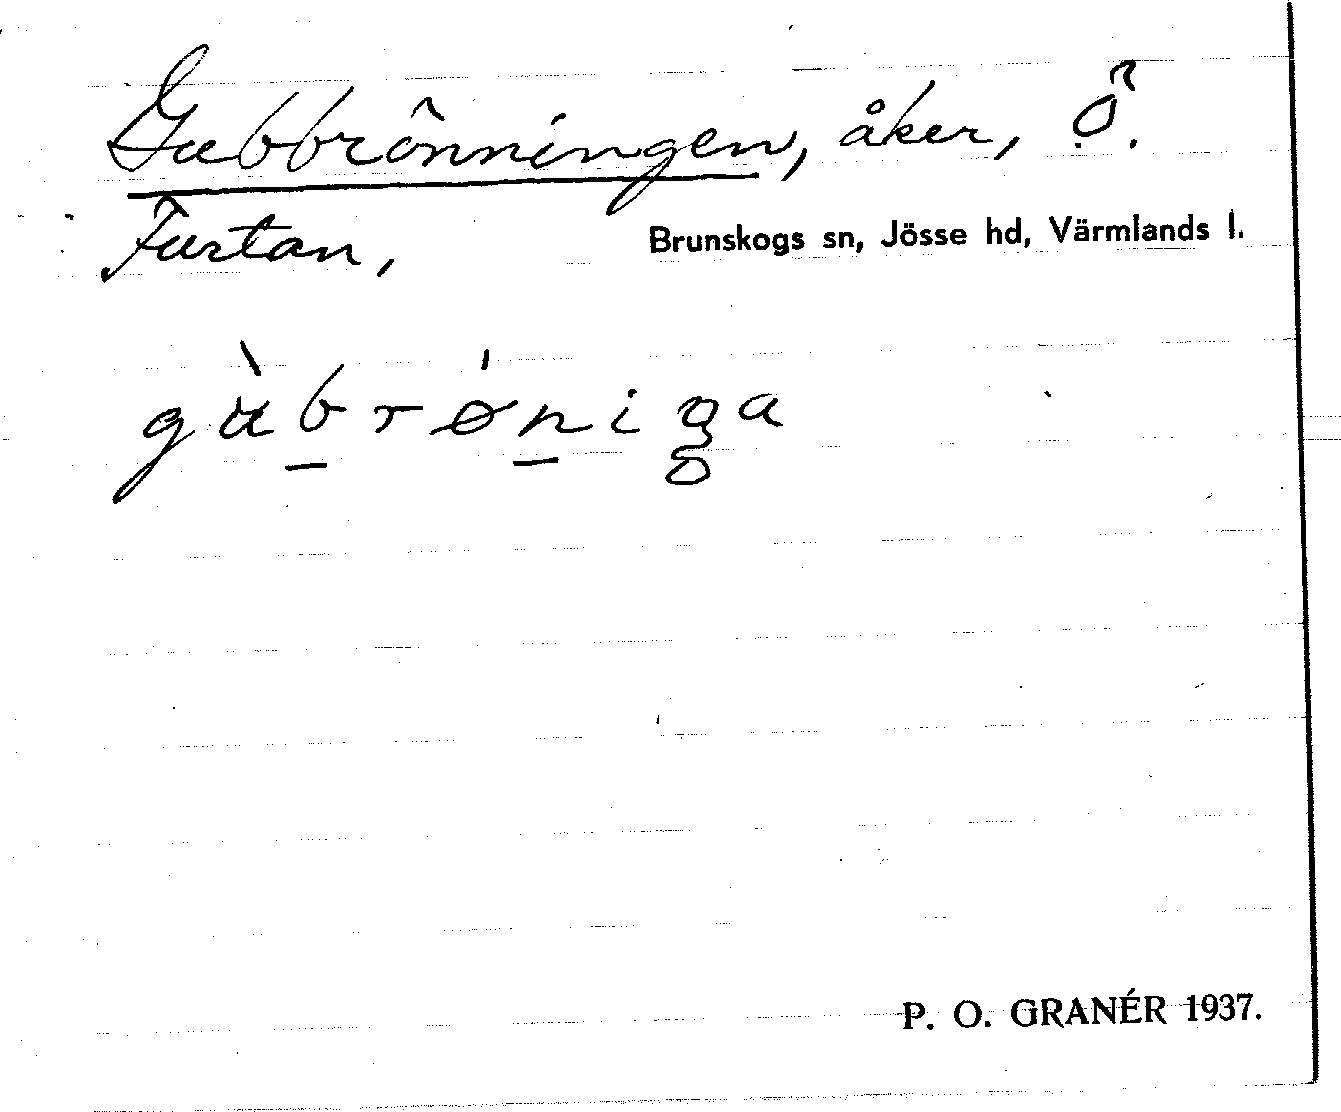 Gubbrönningen, åker, Ö.
Furtan, Brunskogs sn, Jösse hd, Värmlands l.
gùbrǿniga
P. O. GRANÉR 1937.